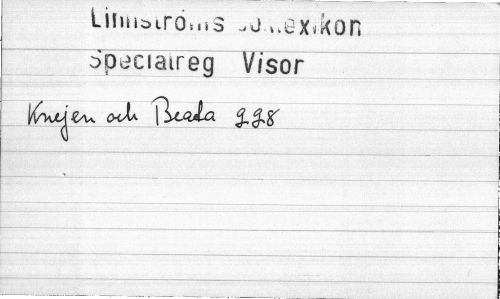 Linnströms boklexikon
Specialreg Visor
Knejen och Beata 228